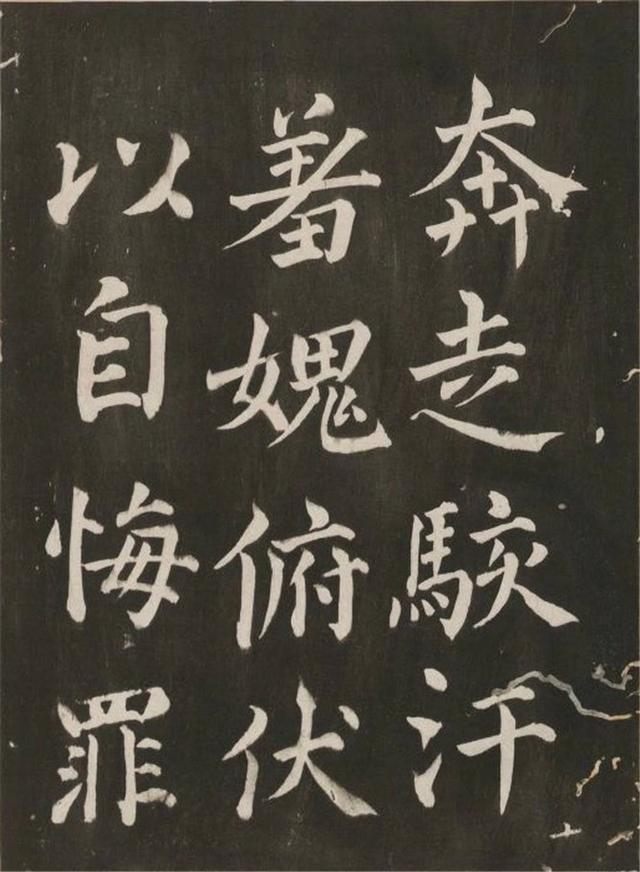 奔走駭汗
羞媿俯伏
以自悔罪